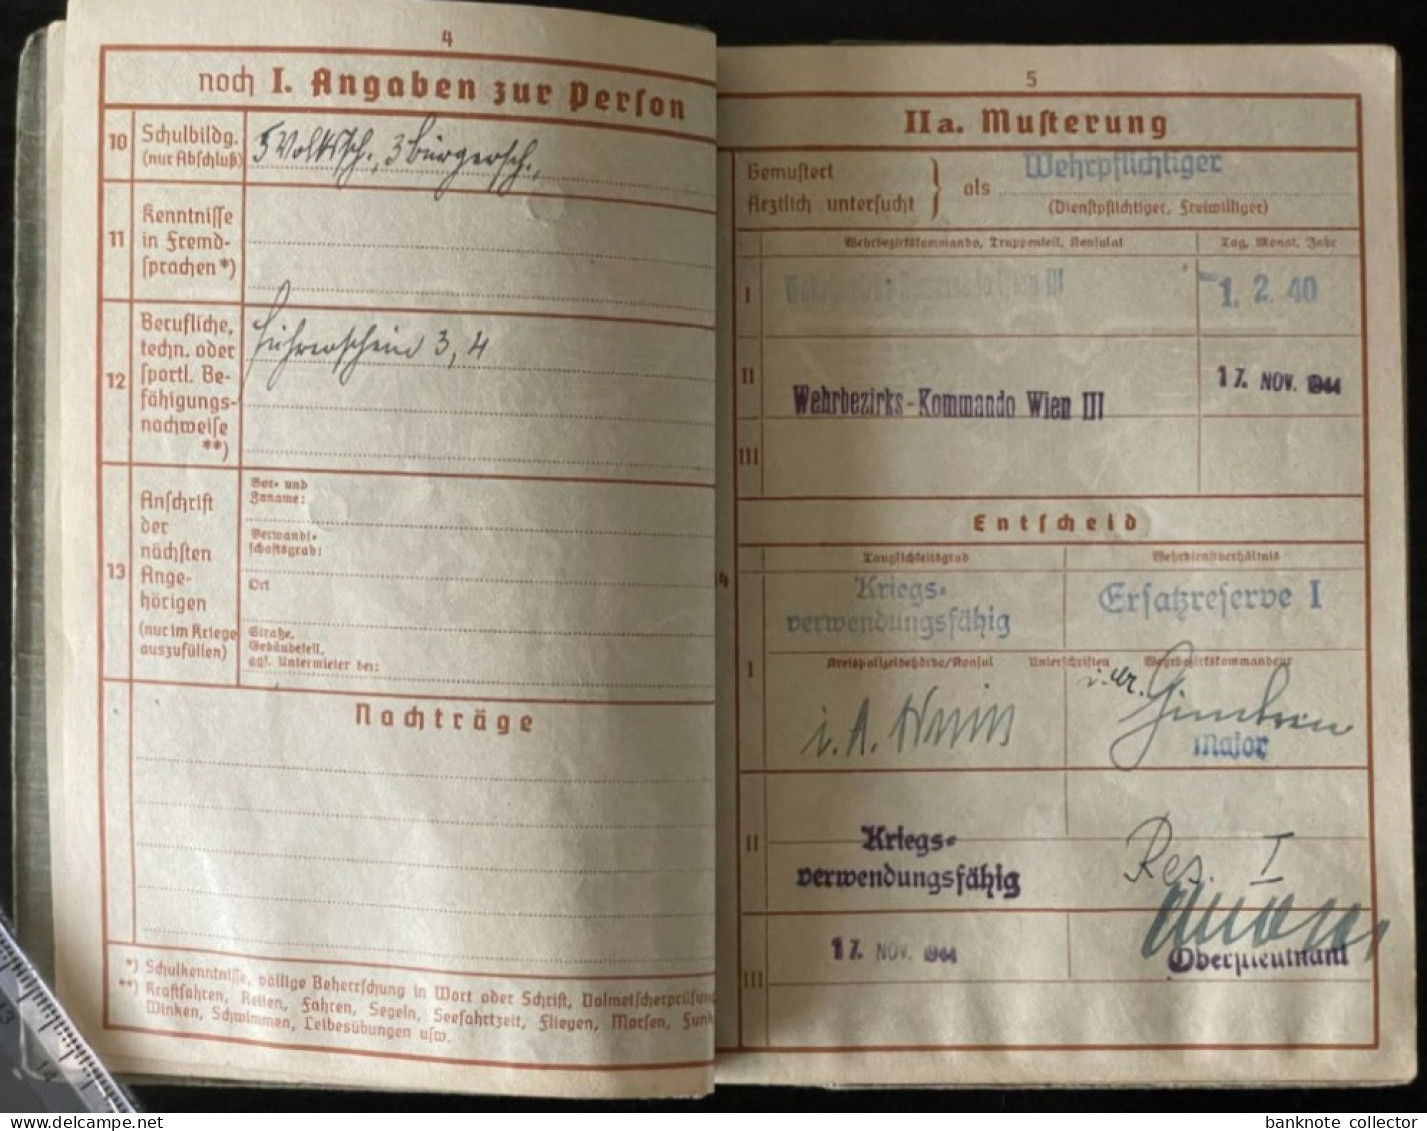 4
noch I. Angaben zur Person
10
Schulbildg.
(nur Abschluß)
5 Volkssch., 3 Bürgersch.,
11
Kenntnisse
in Fremd-
sprachen *)
12
Berufliche,
techn. oder
sportl. Be-
fähigungs-
nachweise
**)
Führerschein 3, 4
13
Anschrift
der
nächsten
Ange-
hörigen
(nur im Kriege
auszufüllen)
Vor- und
Zuname:
Verwandt-
schaftsgrad:
Ort
Straße,
Gebäudeteil,
ggf. Untermieter bei:
Nachträge
*) Schulkenntnisse, völlige Beherrschung in Wort oder Schrift, Dolmetscherprüfung
**) Kraftfahren, Reiten, Fahren, Segeln, Seefahrtzeit, Fliegen, Morsen, Funk
Winken, Schwimmen, Leibesübungen usw.
5
IIa. Musterung
Gemustert
Ärztlich untersucht
als
Wehrpflichtiger
(Dienstpflichtiger, Freiwilliger)
Wehrbezirkskommando, Truppenteil, Konsulat
Tag, Monat, Jahr
I
Wien III
1. 2. 40
II
Wehrbezirks-Kommando Wien III
17. NOV. 1944
III
Entscheid
Tauglichkeitsgrad
Wehrdienstverhältnis
4
Kriegs-
verwendungsfähig
Ersatzreserve I
I
Kreispolizeibehörde/Konsul
Unterschriften
Wehrbezirkskommandeur
i. A.
Major
II
Kriegs-
verwendungsfähig
Res. I
17. NOV. 1944
Oberstleutnant
III
banknote collector